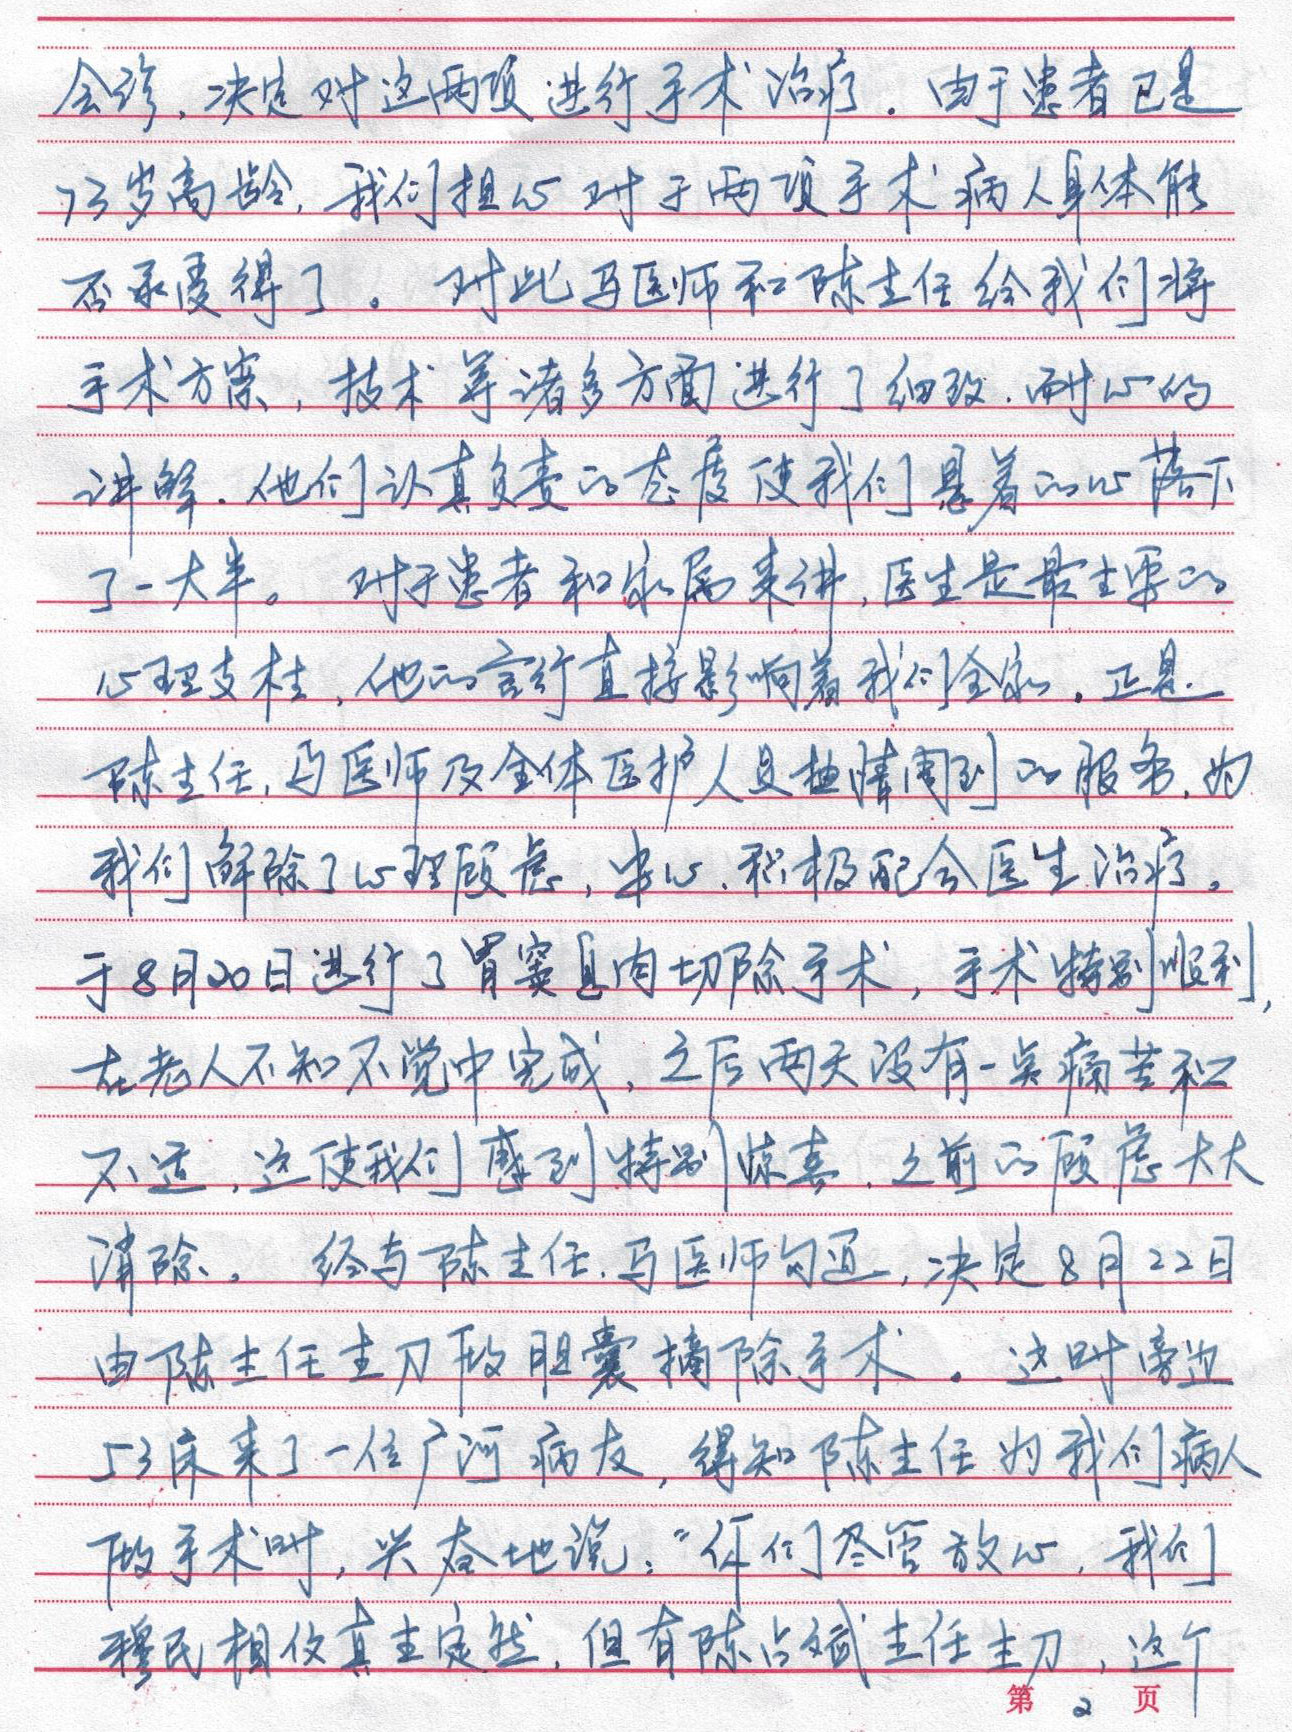 会诊，决定对这两项进行手术治疗。由于患者已是
73岁高龄，我们担心对于两项手术病人身体能
否承受得了。对此马医师和陈主任给我们将
手术方案，技术等诸多方面进行了细致.耐心的
讲解.他们认真负责的态度使我们悬着的心落下
了一大半。对于患者和家属来讲，医生是最主要的
心理支柱，他的言行直接影响着我们全家。正是
陈主任，马医师及全体医护人员热情周到的服务，为
我们解除了心理顾虑，安心.积极配合医生治疗。
于8月20日进行了胃窦息肉切除手术，手术特别顺利，
在老人不知不觉中完成，之后两天没有一点痛苦和
不适，这使我们感到特别惊喜，之前的顾虑大大
消除。经与陈主任.马医师勾通，决定8月22日
由陈主任主刀做胆囊摘除手术。这时旁边
53床来了一位广河病友，得知陈主任为我们病人
做手术时，兴奋地说：“你们尽管放心，我们
穆民相信真主定然，但有陈占斌主任主刀，这个
第2页